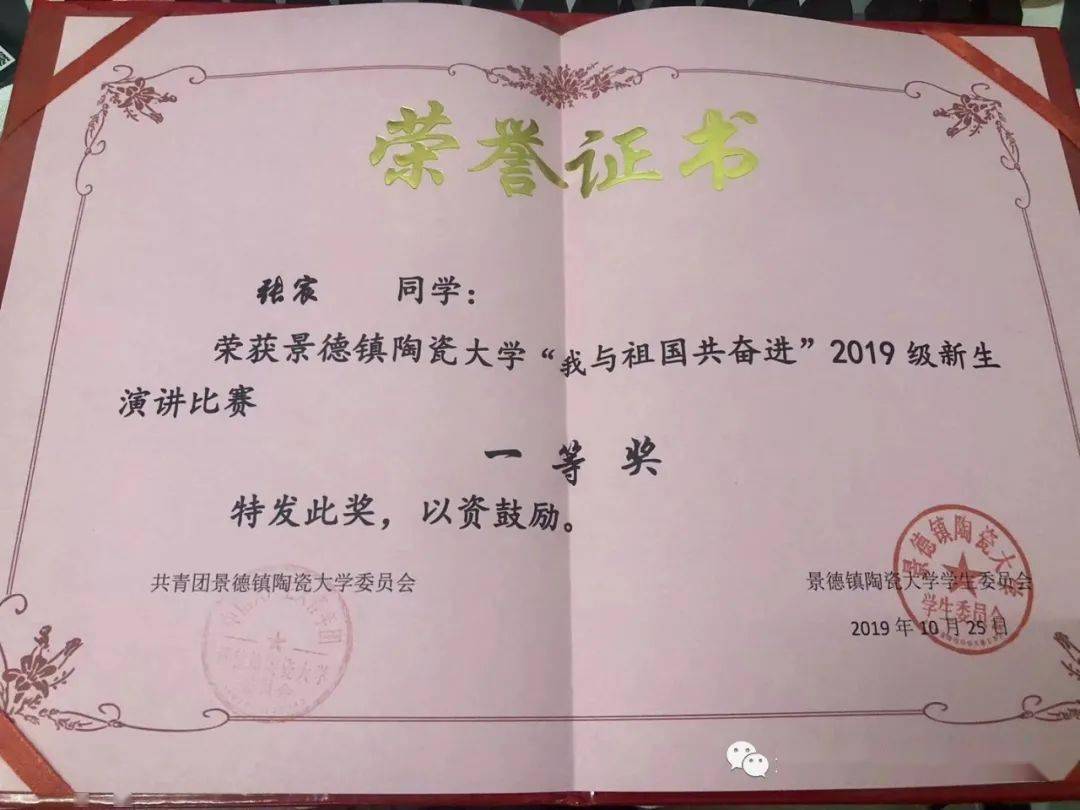 荣誉证书
张宸 同学：
荣获景德镇陶瓷大学“我与祖国共奋进”2019级新生
演讲比赛
一等奖
特发此奖，以资鼓励。
共青团景德镇陶瓷大学委员会
景德镇陶瓷大学学生委员会
2019年10月25日
景德镇陶瓷大学
学生委员会